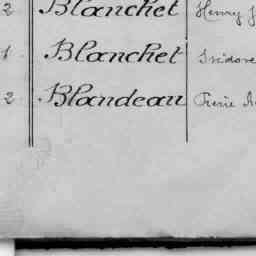 2 Blanchet Henry J
1 Blanchet Isidore
2 Blandeau